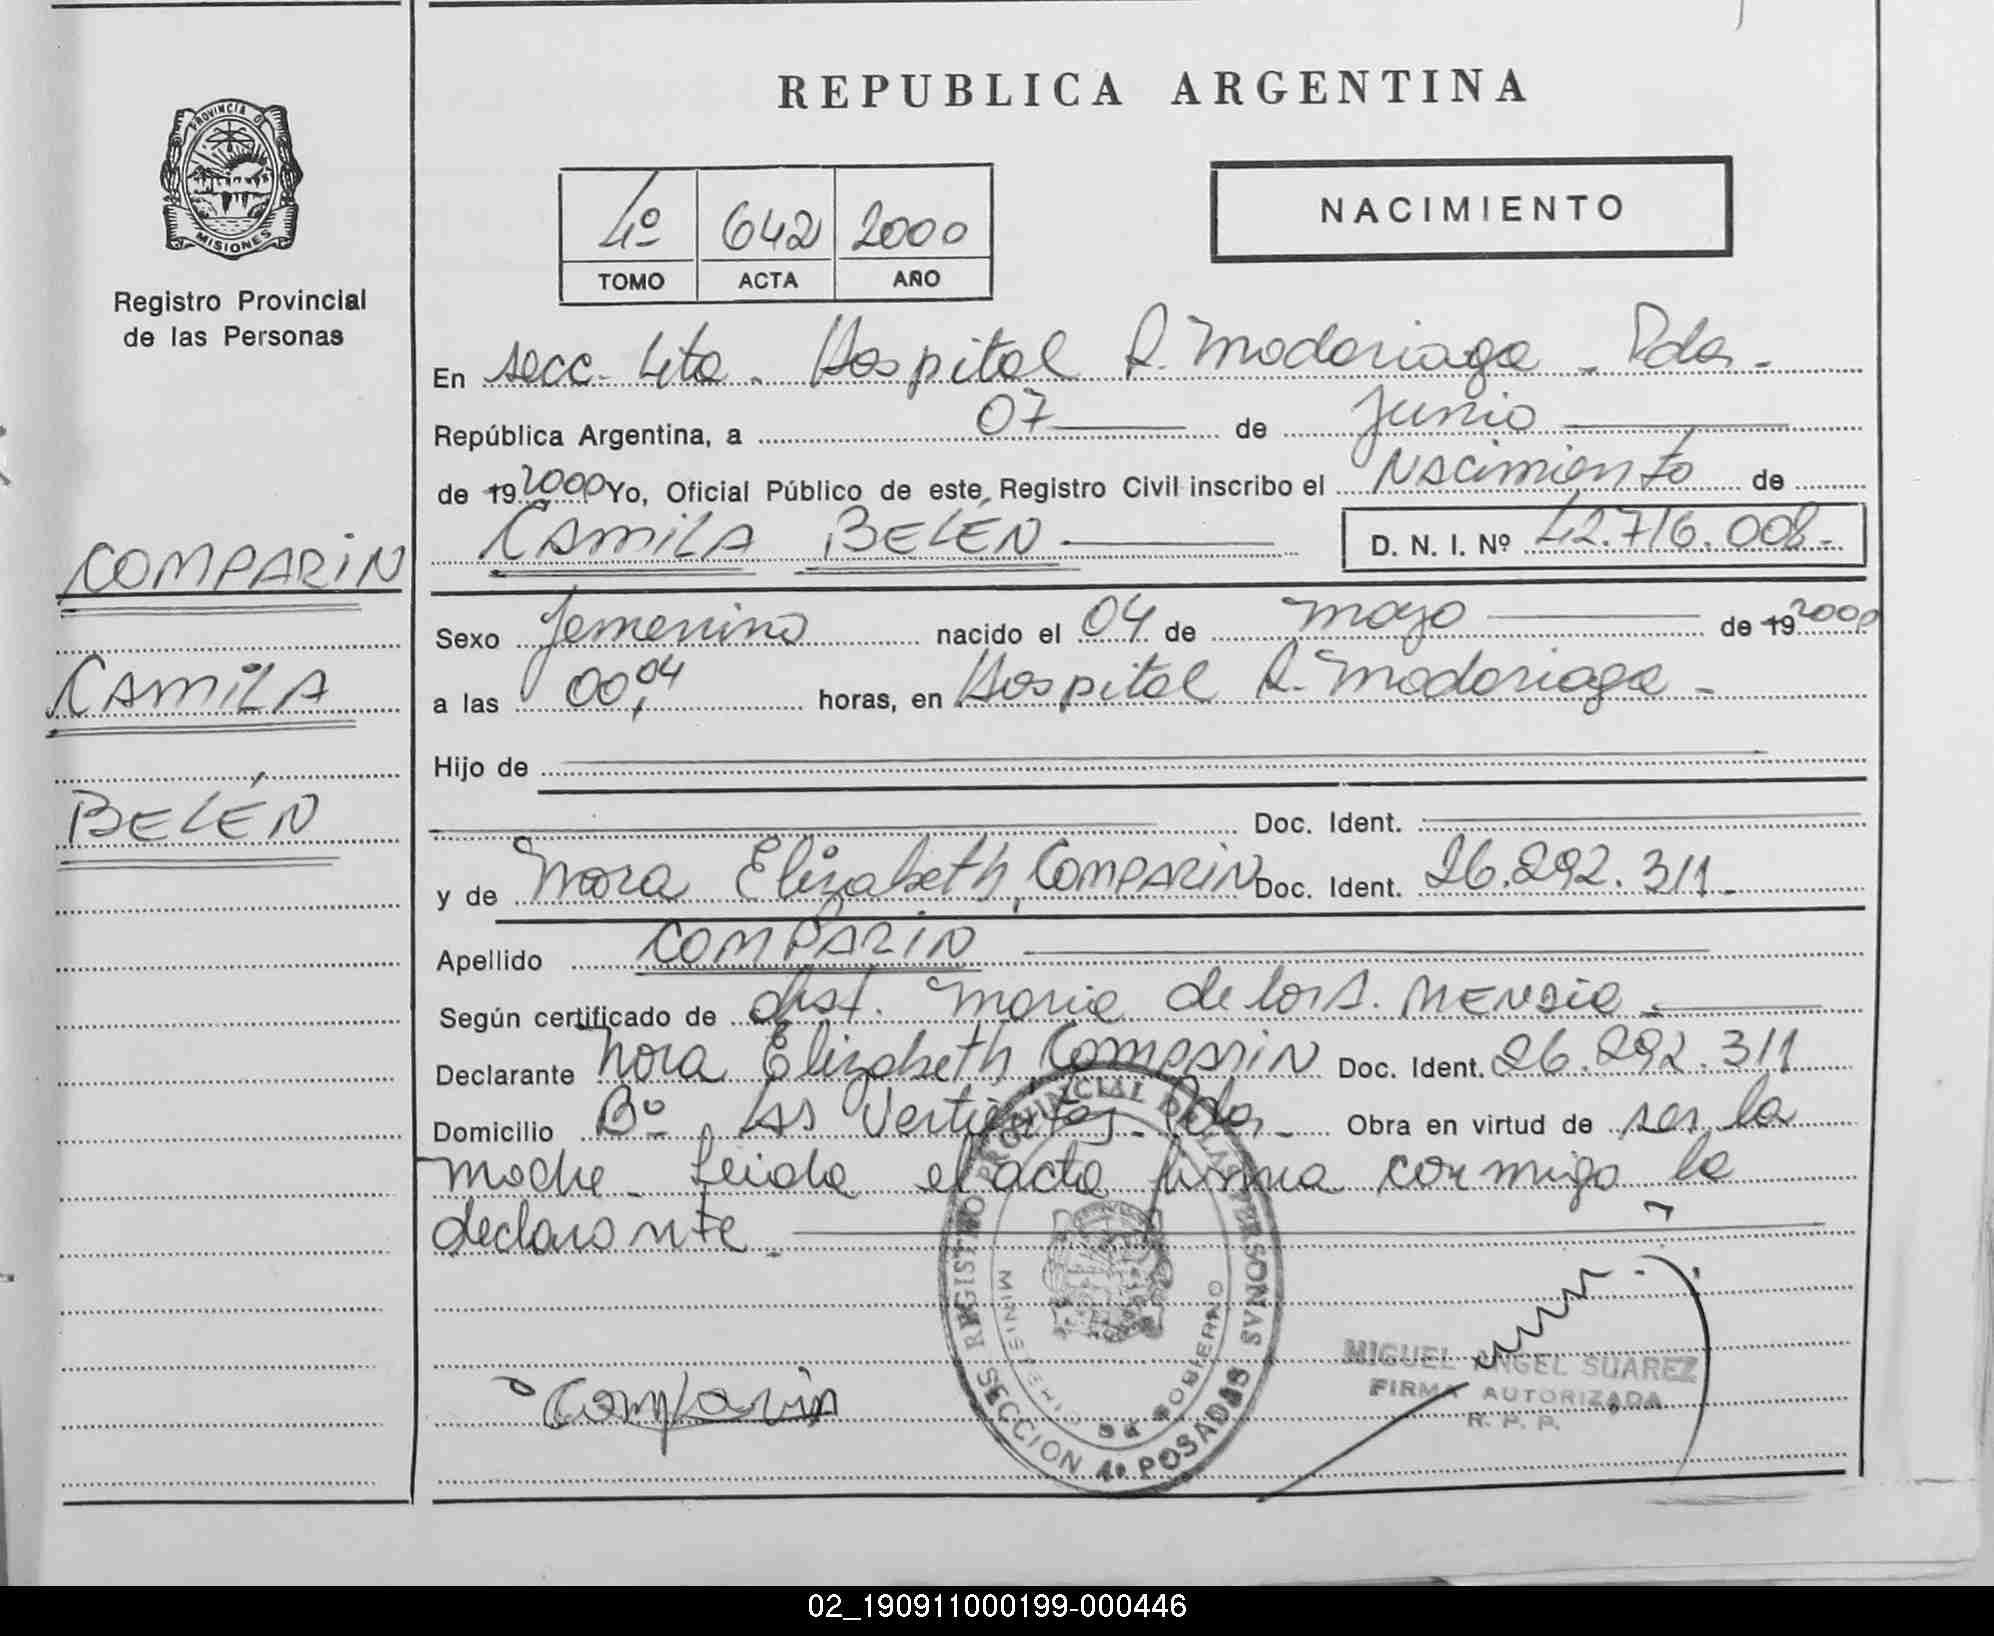 REPUBLICA ARGENTINA
PROVINCIA DE MISIONES
Registro Provincial
de las Personas
4º 642 2000
TOMO ACTA AÑO
NACIMIENTO
En secc. 4ta. Hospital R. Madariaga - Pdas -
República Argentina, a 07 de Junio
de 19 2000 Yo, Oficial Público de este Registro Civil inscribo el Nacimiento de
CAMILA BELÉN D. N. I. Nº 42.716.008.-
COMPARIN
CAMILA
BELÉN
Sexo femenino nacido el 04 de mayo de 19 2000
a las 00,04 horas, en Hospital R. Madariaga -
Hijo de
Doc. Ident.
y de Nora Elizabeth COMPARIN Doc. Ident. 26.292.311 -
Apellido COMPARIN
Según certificado de obst. Maria de los A.
Declarante Nora Elizabeth COMPARIN Doc. Ident. 26.292.311
Domicilio Bº Las Vertientes - Pdas - Obra en virtud de ser la
madre - Leida el acta firma conmigo la
declarante -
REGISTRO PROVINCIAL DE LAS PERSONAS
MINISTERIO DE GOBIERNO
SECCION 4a POSADAS
Comparin
MIGUEL ANGEL SUAREZ
FIRMA AUTORIZADA
R. P. P.
02_190911000199-000446